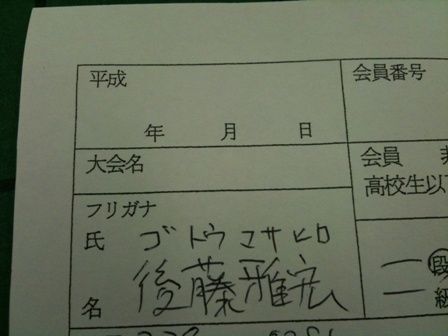 平成 会員番号
年 月 日
大会名 会員
高校生以
フリガナ
氏 ゴトウマサヒロ
名 後藤雅宏 一 段
二 級